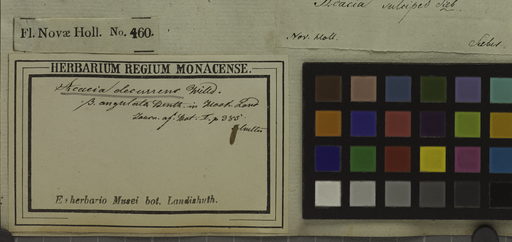 Acacia sulcipes Sieb.
Nov. Holl.
Sieber.
Fl. Novæ Holl. No. 460.
HERBARIUM REGIUM MONACENSE.
Acacia decurrens Willd.
β. angulata Benth. in Hook. Lond
Journ. of Bot. I. p 385
Ex herbario Musei bot. Landishuth.